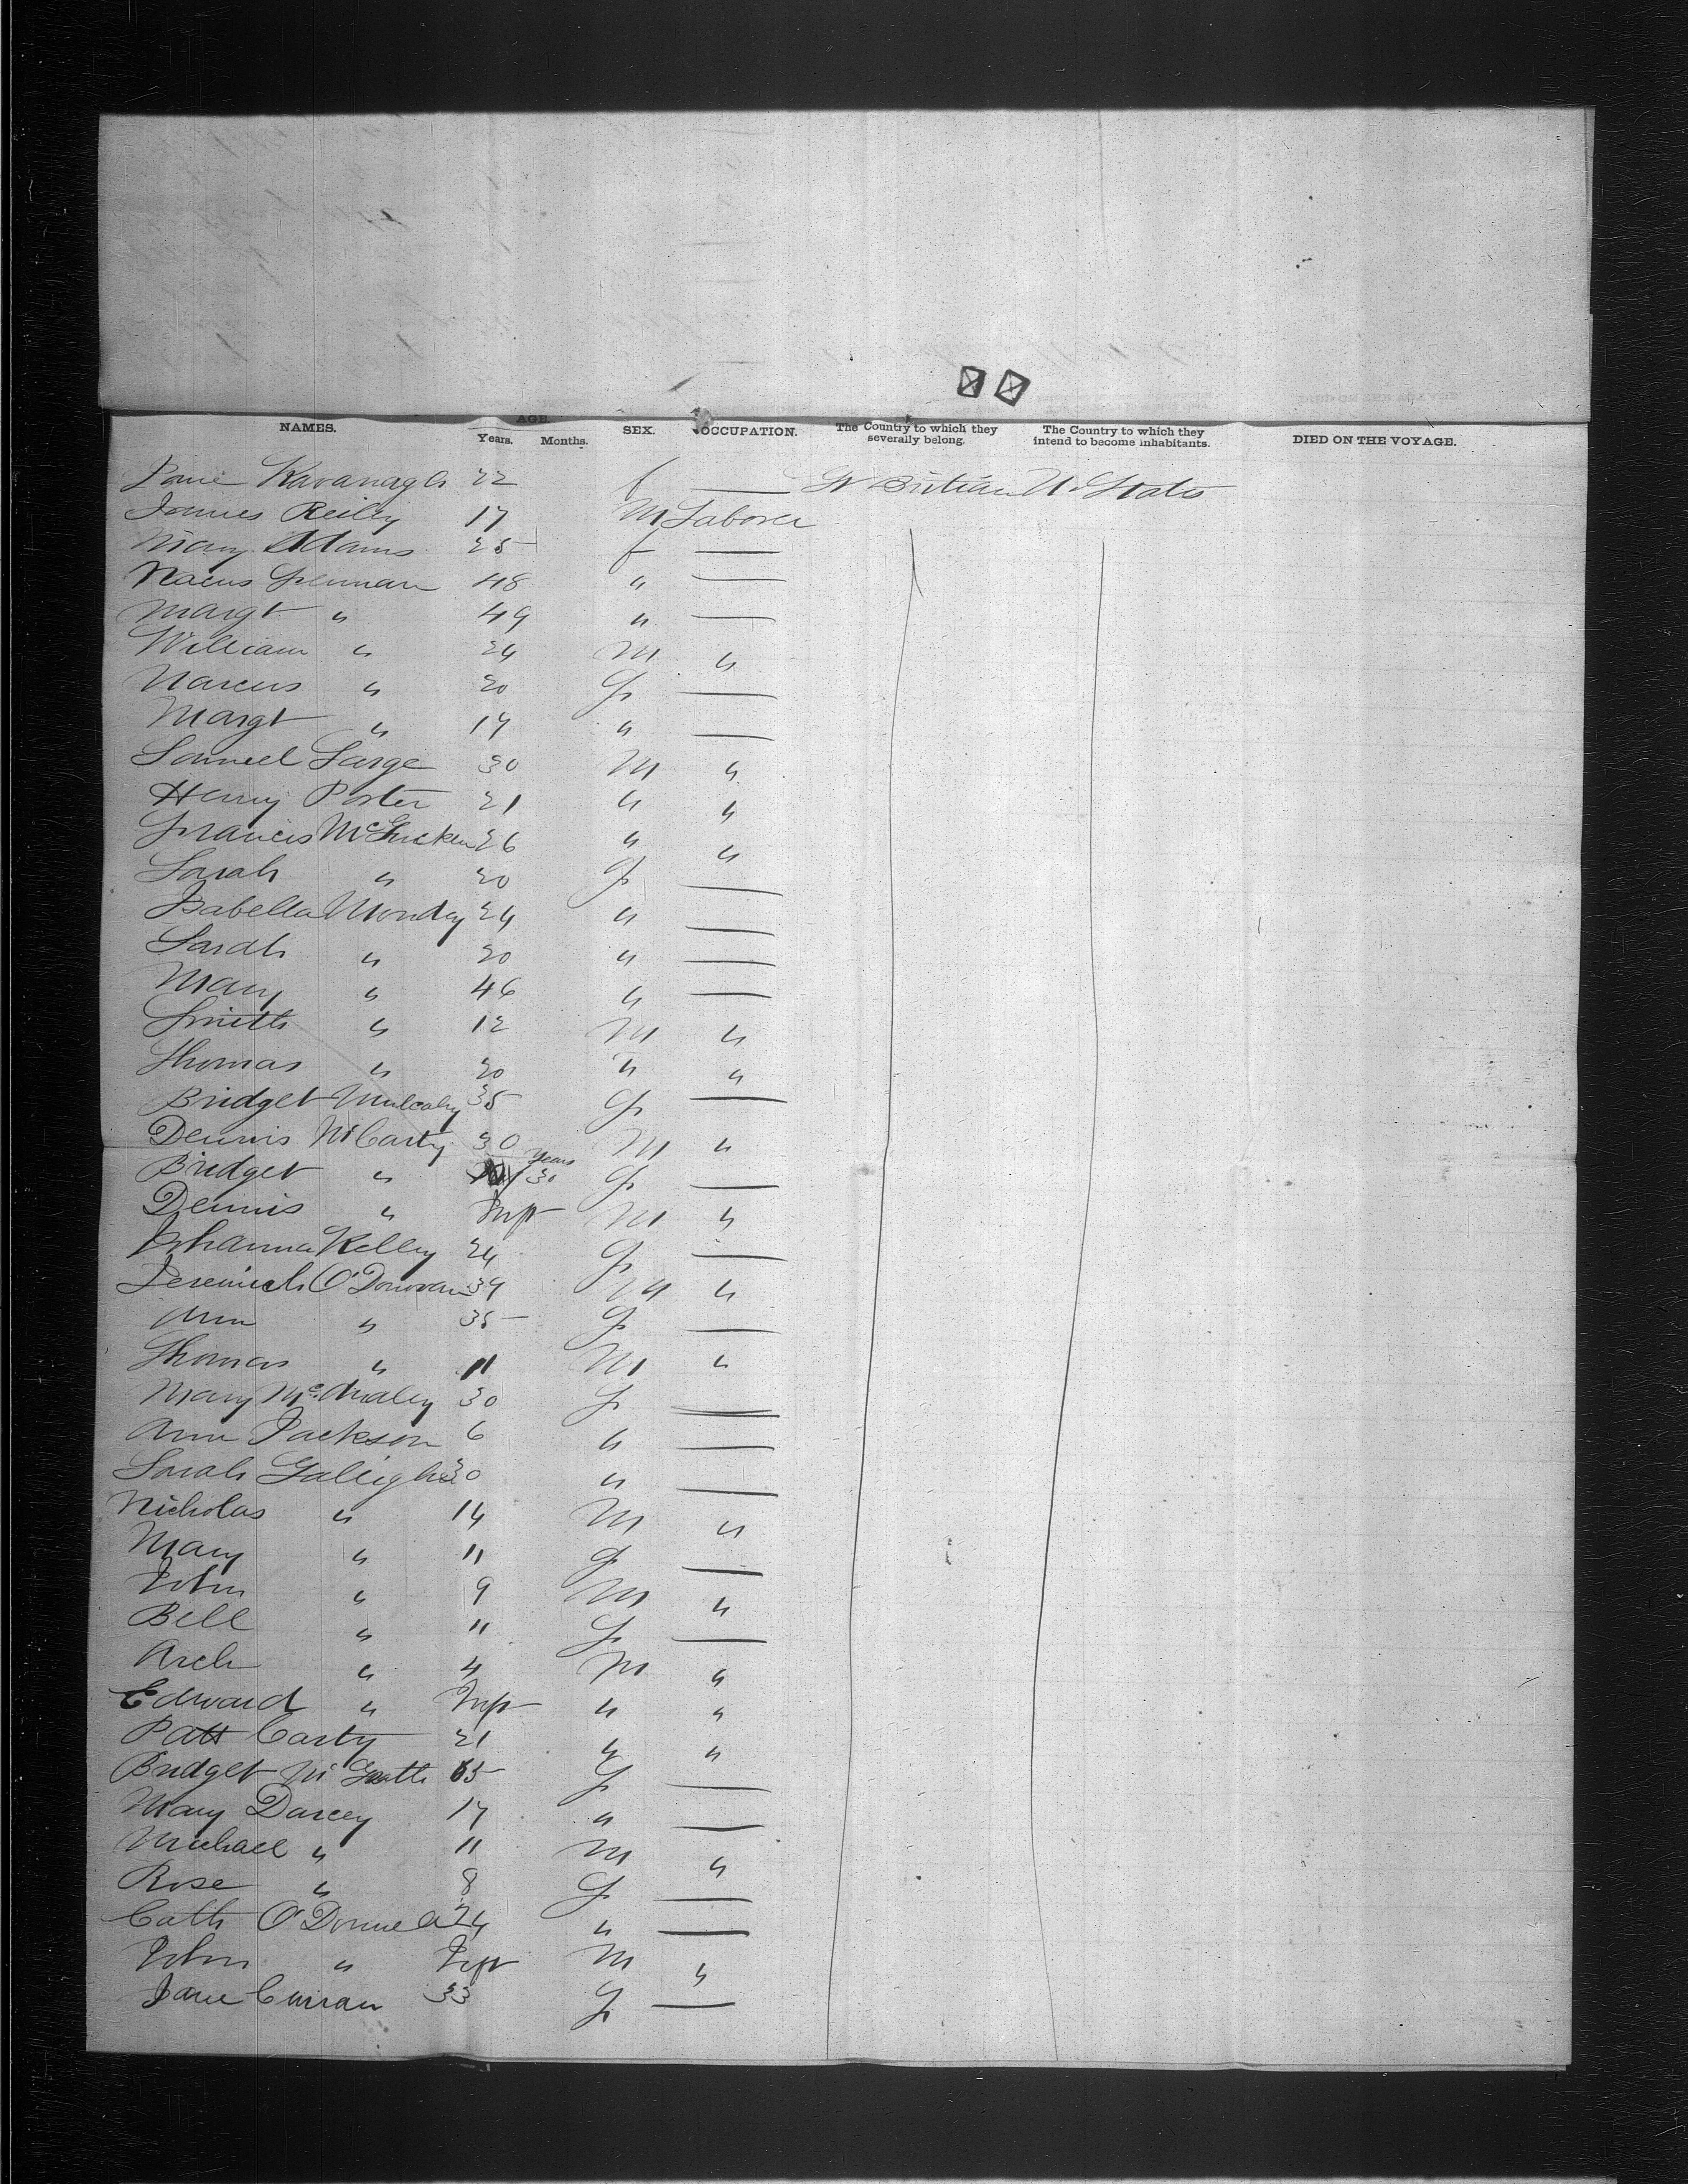 NAMES. AGE. Years. Months. SEX. OCCUPATION. The Country to which they severally belong. The Country to which they intend to become inhabitants. DIED ON THE VOYAGE.
Jane Kavanagh 22 f — Gt Britian U. States
James Reiley 17 M Laborer
Mary Adams 25 f —
48 " —
Margt " 49 " —
William " 24 M "
Marcus " 20 F —
Margt " 17 " —
Samuel Large 30 M "
Henry Porter 21 " "
Francis McGucken 26 " "
Sarah " 20 F —
Isabella Monday 24 " —
Sarah " 20 " —
Mary " 46 " —
Smith " 12 M "
Thomas " 20 " "
Bridget Mulcahy 35 F —
Dennis McCarty 30 M "
Bridget " 30 years F —
Dennis " Inft M "
Johanna Kelly 24 F —
Jeremiah O'Donovan 39 M "
Ann " 35 F —
Thomas " 11 M "
Mary 30 F —
Ann Jackson 6 " —
Sarah Galligher 30 " —
Nicholas " 14 M "
Mary " 11 F —
John " 9 M "
Bell " 11 F —
Arch " 4 M "
Edward " Inft " "
Patt Carty 21 " "
Bridget McGrath 65 F —
Mary Darcey 17 " —
Michael " 11 M "
Rose " 8 F —
Cath O'Donnell 24 " —
John " Inft M "
Jane Curran 33 F —